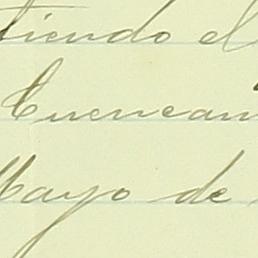 tiendo el
Cuencam
Mayo de